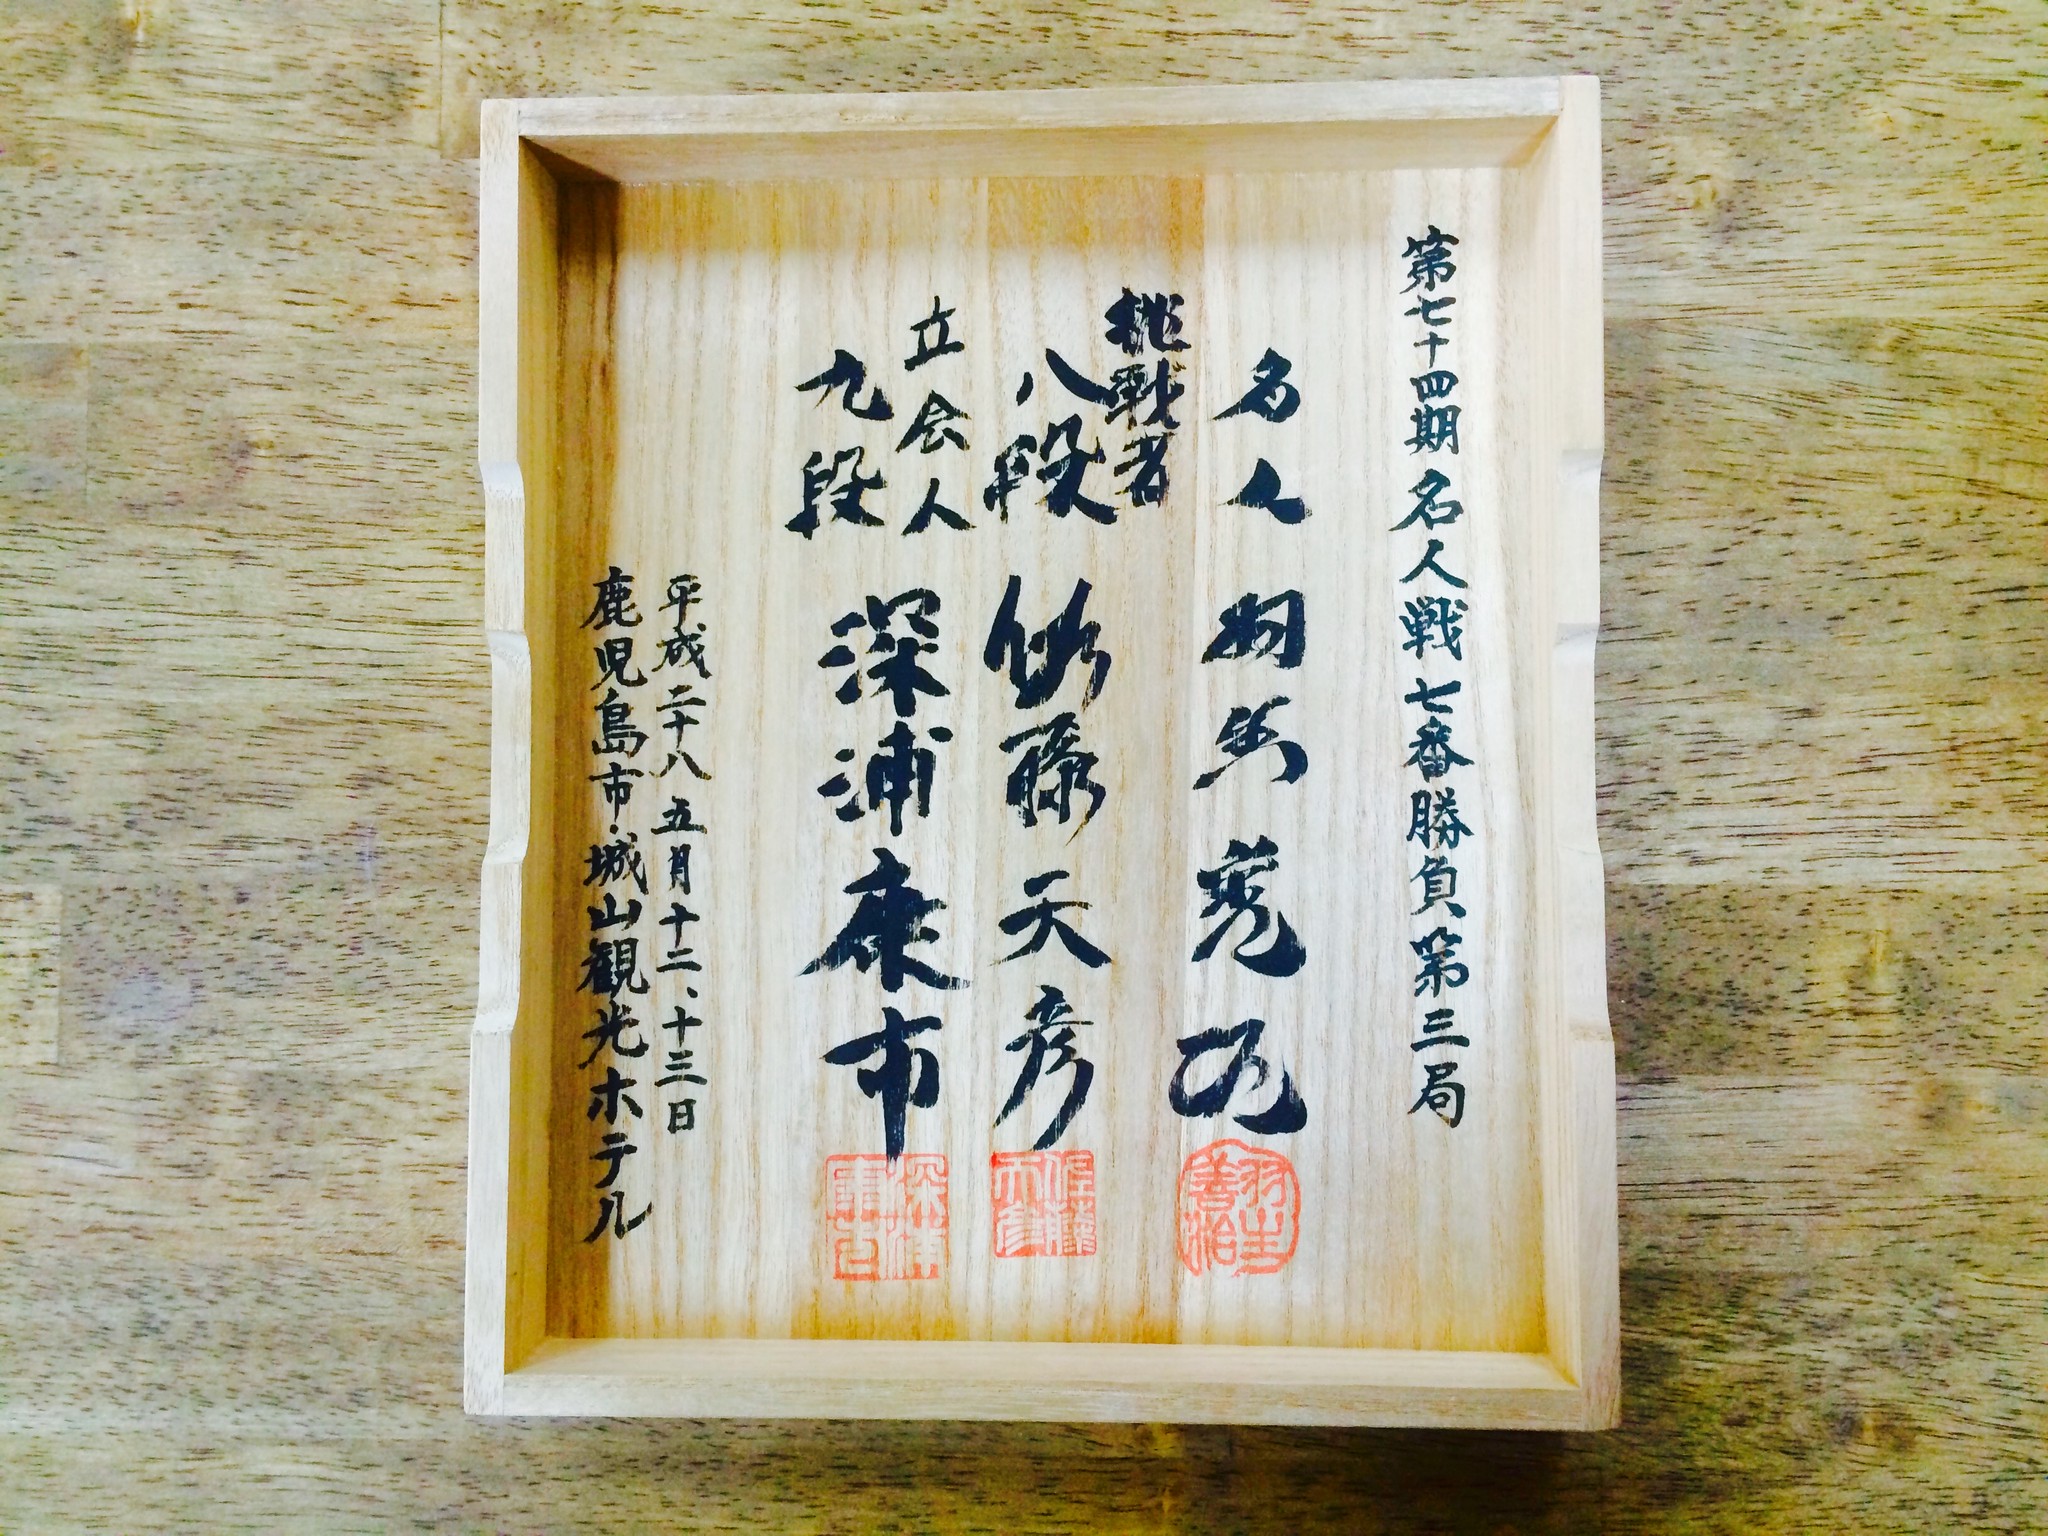 第七十四期 名人戦 七番勝負第三局
名人 羽生善治
羽生善治
挑戦者
八段 佐藤天彦
佐藤天彦
立会人
九段 深浦康市
深浦
平成二十八 五月十二、十三日
鹿児島市・城山観光ホテル